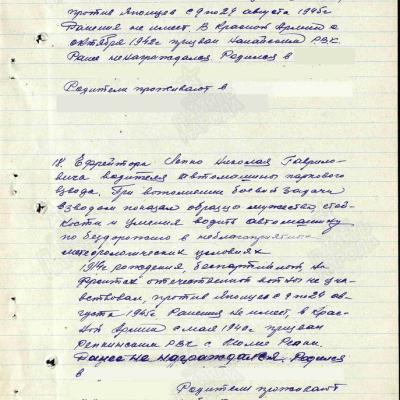 против Японцев с 9 по 24 августа 1945г
Ранения не имеет. В Красной Армии с
октября 1942г призван Нанайским РВК.
Ранее ненаграждался. Родился в
Родители проживают в
18. Ефрейтора Лепко Николая Гаврило-
вича водителя автомашины паркового
взвода. При выполнении боевой задачи
взводом показал образцы мужества стой-
кости и умения водить автомашину
по бездорожью в неблагоприятных
метеорологических условиях
1914г рождения, беспартийной, на
фронтах отечественной войны не уча-
ствовал, против Японцев с 9 по 24 ав-
густа 1945г Ранения не имеет, в Крас-
ной Армии с мая 1940г призван
РВК с
Ранее не награждался. Родился
в
Родители проживают